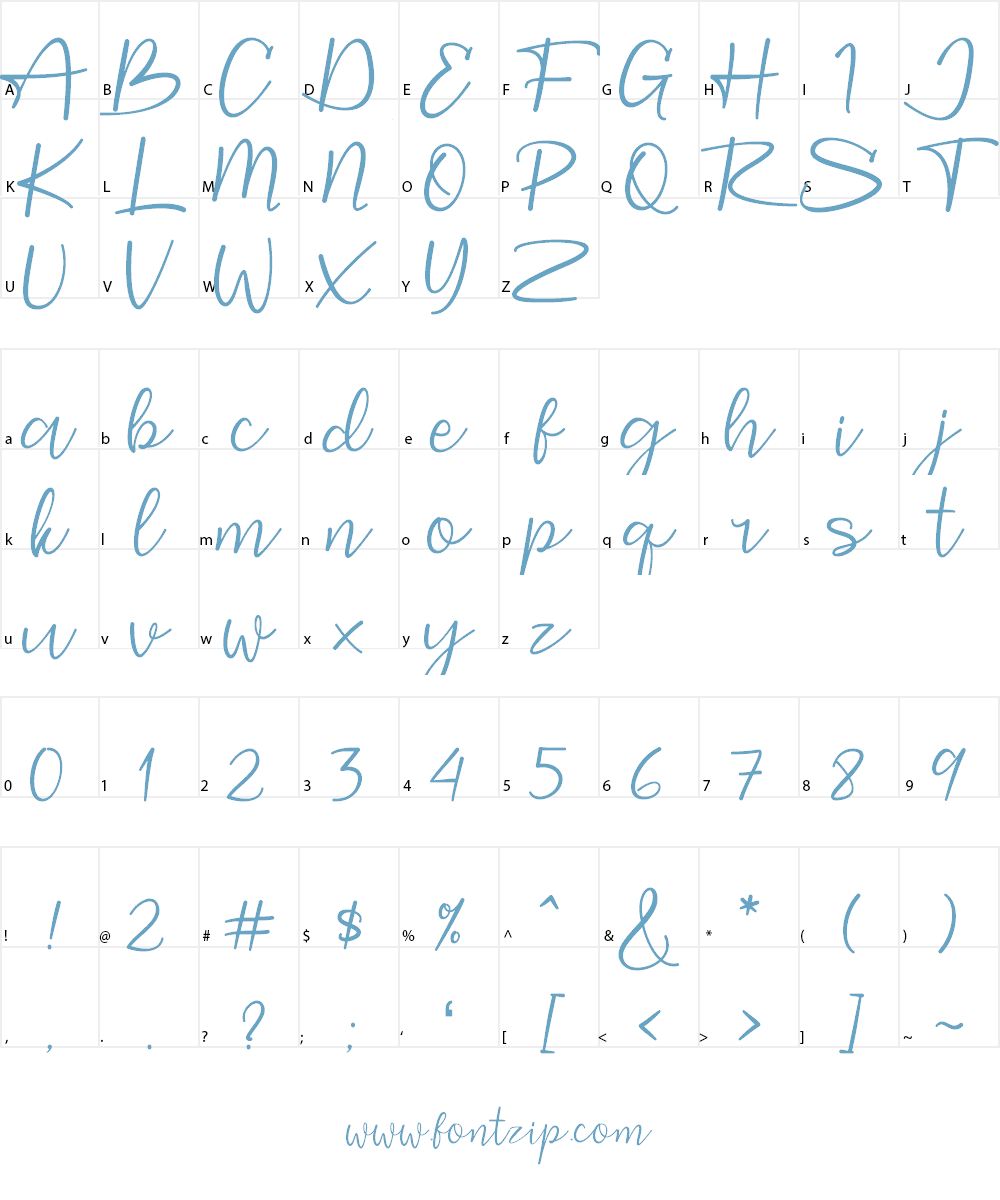 A A B B C C D D E E F F G G H H I I J J
K K L L M M N N O O P P Q Q R R S S T T
U U V V W W X X Y Y Z Z
a a b b c c d d e e f f g g h h i i j j
k k l l m m n n o o p p q q r r s s t t
u u v v w w x x y y z z
0 0 1 1 2 2 3 3 4 4 5 5 6 6 7 7 8 8 9 9
! ! @ 2 # # $ $ % % ^ ^ & & * * ( ( ) )
, , . . ? ? ; ; ‘ ‘ [ [ < < > > ] ] ~ ~
www.fontzip.com